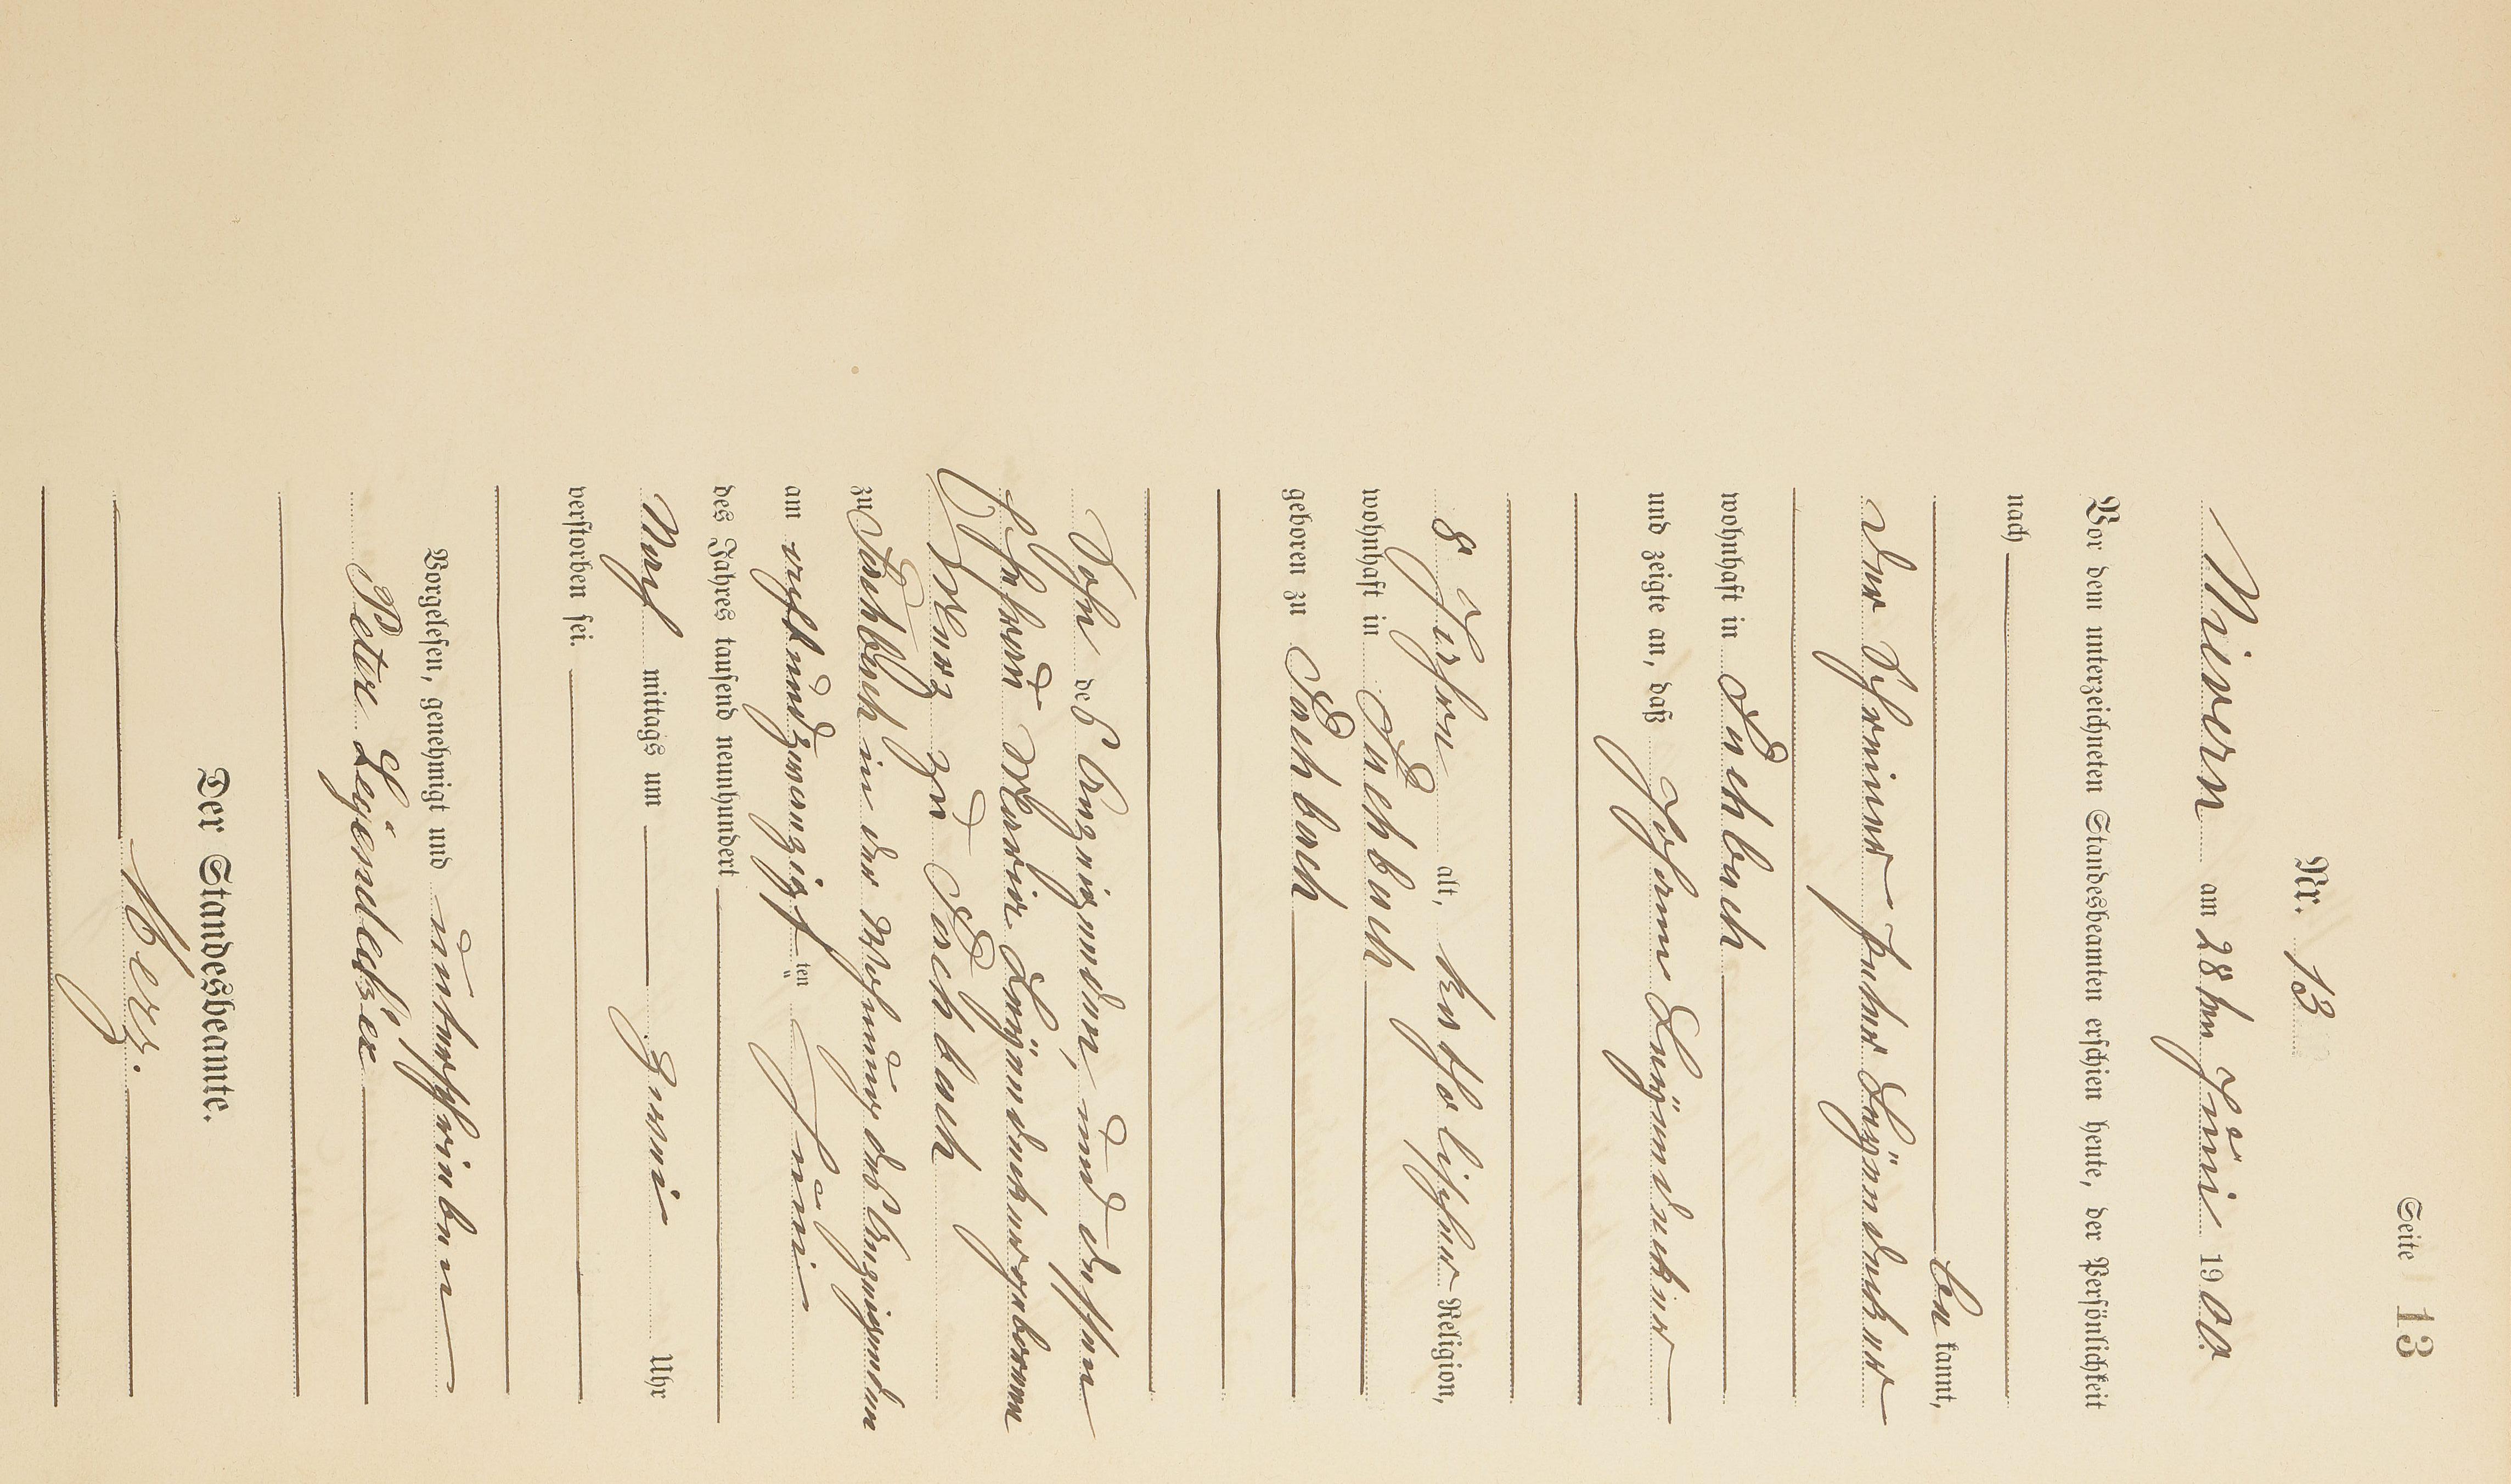 Seite 13
Nr. 13
Nievern am 28ten Juni 1900.
Vor dem unterzeichneten Standesbeamten erschien heute, der Persönlichkeit
nach
bekannt,
der Schreiner Peter Leÿendecker
wohnhaft in Fachbach
und zeigte an, daß Johann Leÿendecker
8 Jahre alt, katholischer Religion,
wohnhaft in Fachbach
geboren zu Fachbach
Sohn des Anzeigenden, und dessen
Ehefrau Maria Leÿendecker geborenen
zu Fachbach
zu Fachbach in der Wohnung des Anzeigenden
am achtundzwanzigsten Juni
des Jahres tausend neunhundert
Nachmittags um zwei Uhr
verstorben sei.
Vorgelesen, genehmigt und unterschrieben
Peter Leÿendecker
Der Standesbeamte.